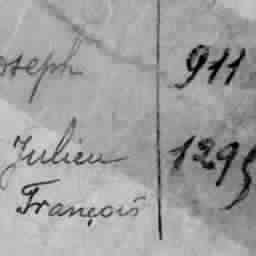 oseph 911
Julien 1295
François